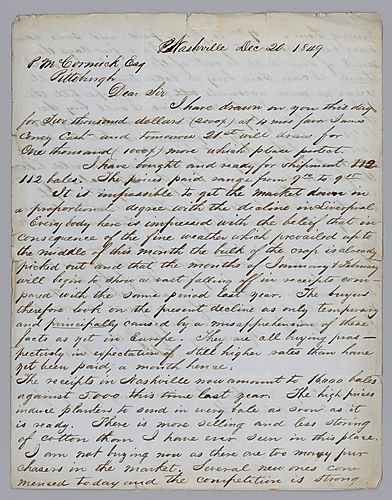 Nashville Dec 20 1849
P McCormick Esq
Pittsburgh
Dear Sir
I have drawn on you this day
for Two thousand dollars (2000$) at 4 mos favor James
Correy Cash and tomorrow 21st will draw for
One thousand (1000$) more which please protect.
I have bought and ready for shipment 112
112 bales. The prices paid range from 9 to 9
It is impossible to get the market down in
a proportionate degree with the decline in Liverpool
Everybody here is impressed with the belief that in
consequence of the fine weather which prevailed up to
the middle of this month the bulk of the crop is already
picked out and that the months of January & February
will begin to show a vast falling off in receipts com-
pared with the same period last year. The buyers
therefore look on the present decline as only temporary
and principally caused by a misapprehension of these
facts as yet in Europe. They are all buying pros-
pectively in expectation of still higher rates than have
yet been paid, a month hence.
The receipts in Nashville now amount to 16000 bales
against 5000 this time last year. The high prices
induce planters to send in every bale as soon as it
is ready. There is more selling and less storing
of cotton than I have ever seen in this place.
I am not buying now as there are too many pur
chasers in the market. Several new ones com
menced today and the competition is strong